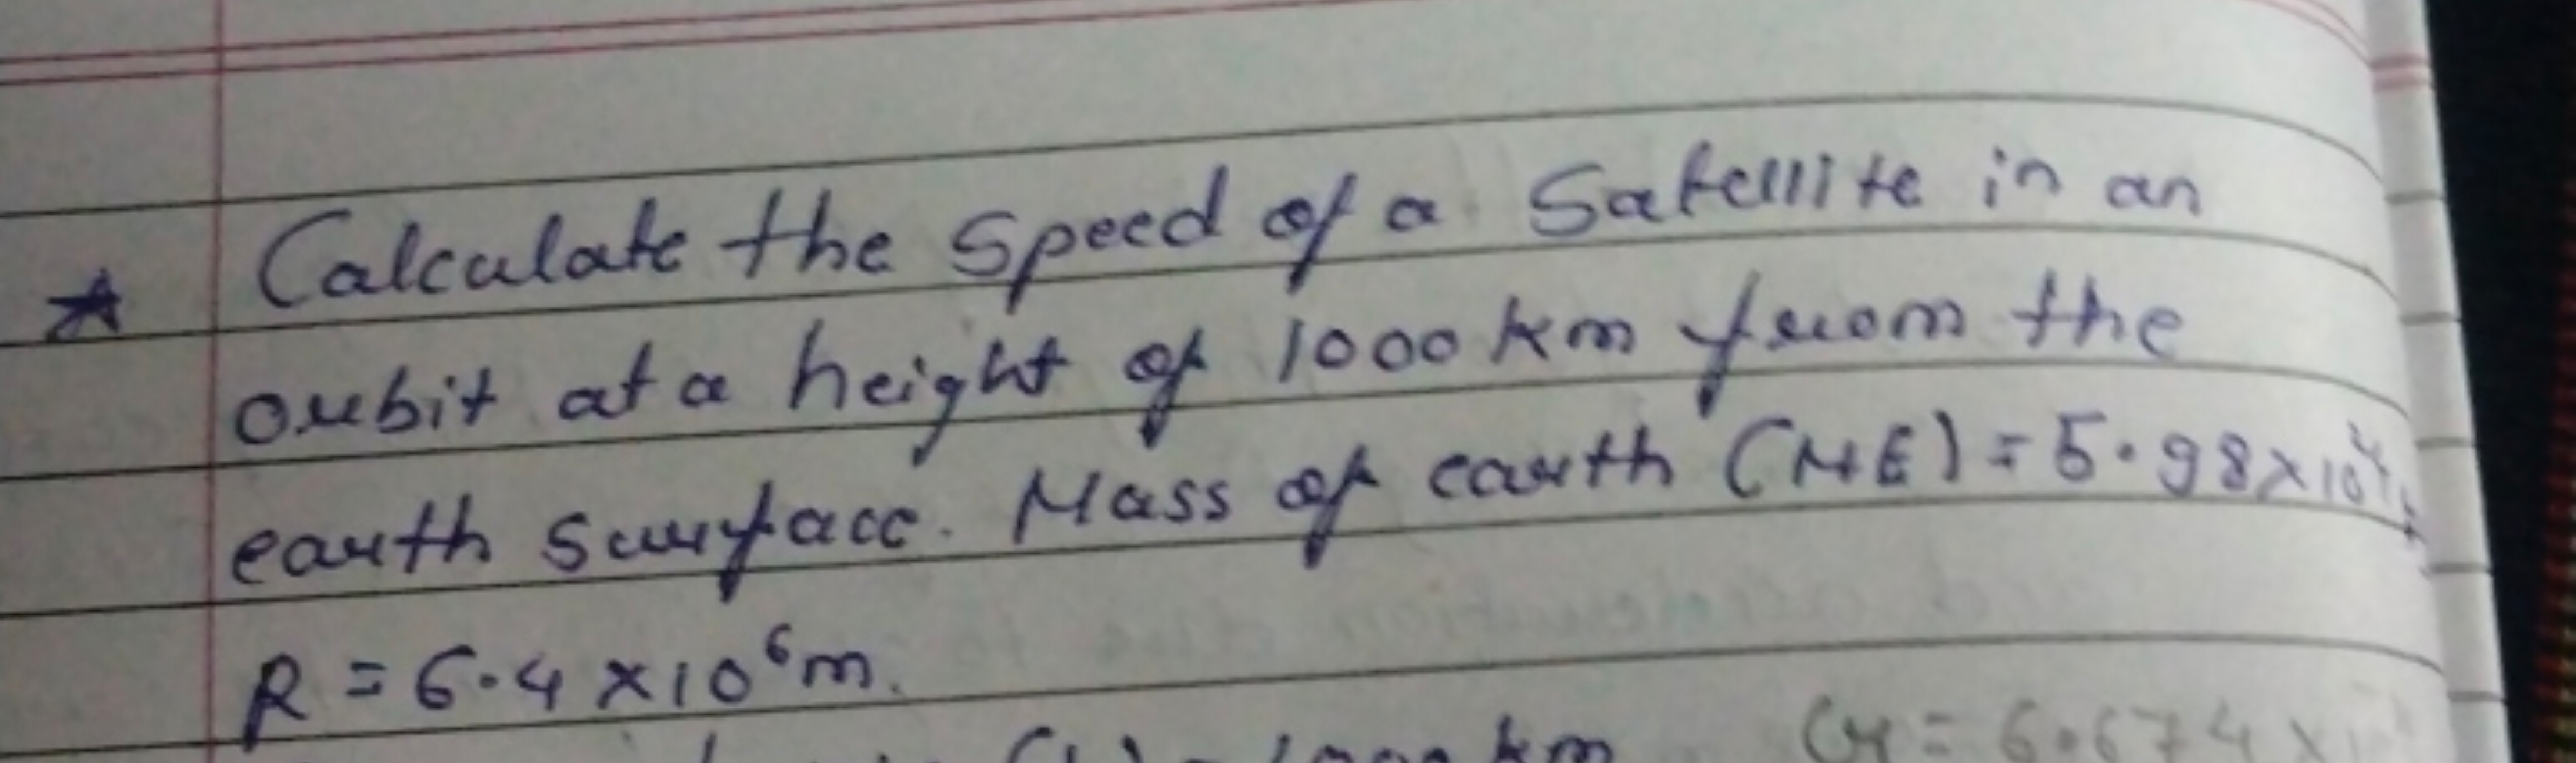 Calculate the speed of a satellite in an
orbit at a height of 1000 km from the
earth surface. Mass of earth (ME) = 5.98×10²⁴
R = 6.4 × 10⁶m.
(h) = 1000 km G = 6.674 ×